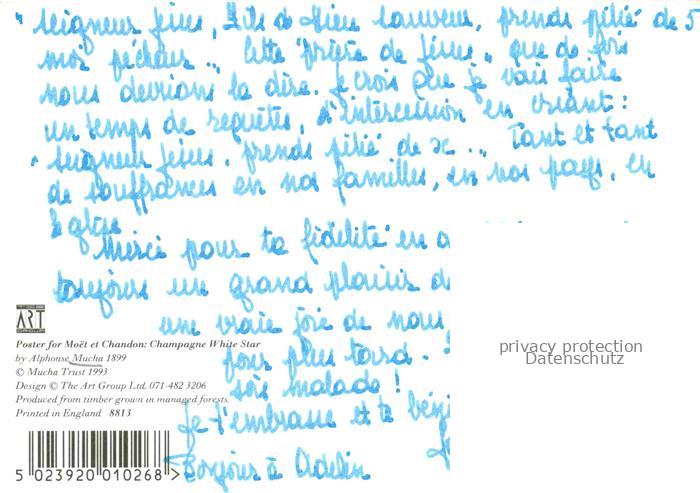 " Seigneur Jésus, Fils de Dieu Sauveur, prends pitié de
moi pécheur ... Cette "prière de Jésus" que de fois
nous devrions la dire. Je crois que je vais faire
un temps de requêtes, d'intercession en criant :
" Seigneur Jésus, prends pitié de x ... Tant et tant
de souffrances en nos familles, en nos pays, en
Eglise
Merci pour ta fidélité en a
toujours un grand plaisir de
une vraie joie de nous
pour plus tard.
sois malade !
Je t'embrasse et te béni
Bonjour à Adelin
ART
Poster for Moët et Chandon: Champagne White Star
by Alphonse Mucha 1899
© Mucha Trust 1993
Design © The Art Group Ltd. 071-482 3206
Produced from timber grown in managed forests.
Printed in England 8813
5 023920 010268 >
privacy protection
Datenschutz